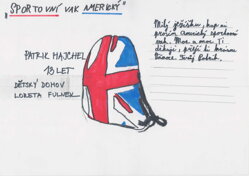 "SPORTOVNÍ VAK AMERICKÝ"
PATRIK HAJCHEL
13 LET
DĚTSKÝ DOMOV
LORETA FULNEK
Milý Ježíšku, kup mi
prosím americký sportovní
vak. Moc a moc Ti
děkuji, přeji ti krásné
Vánoce. Tvůj Patrik.